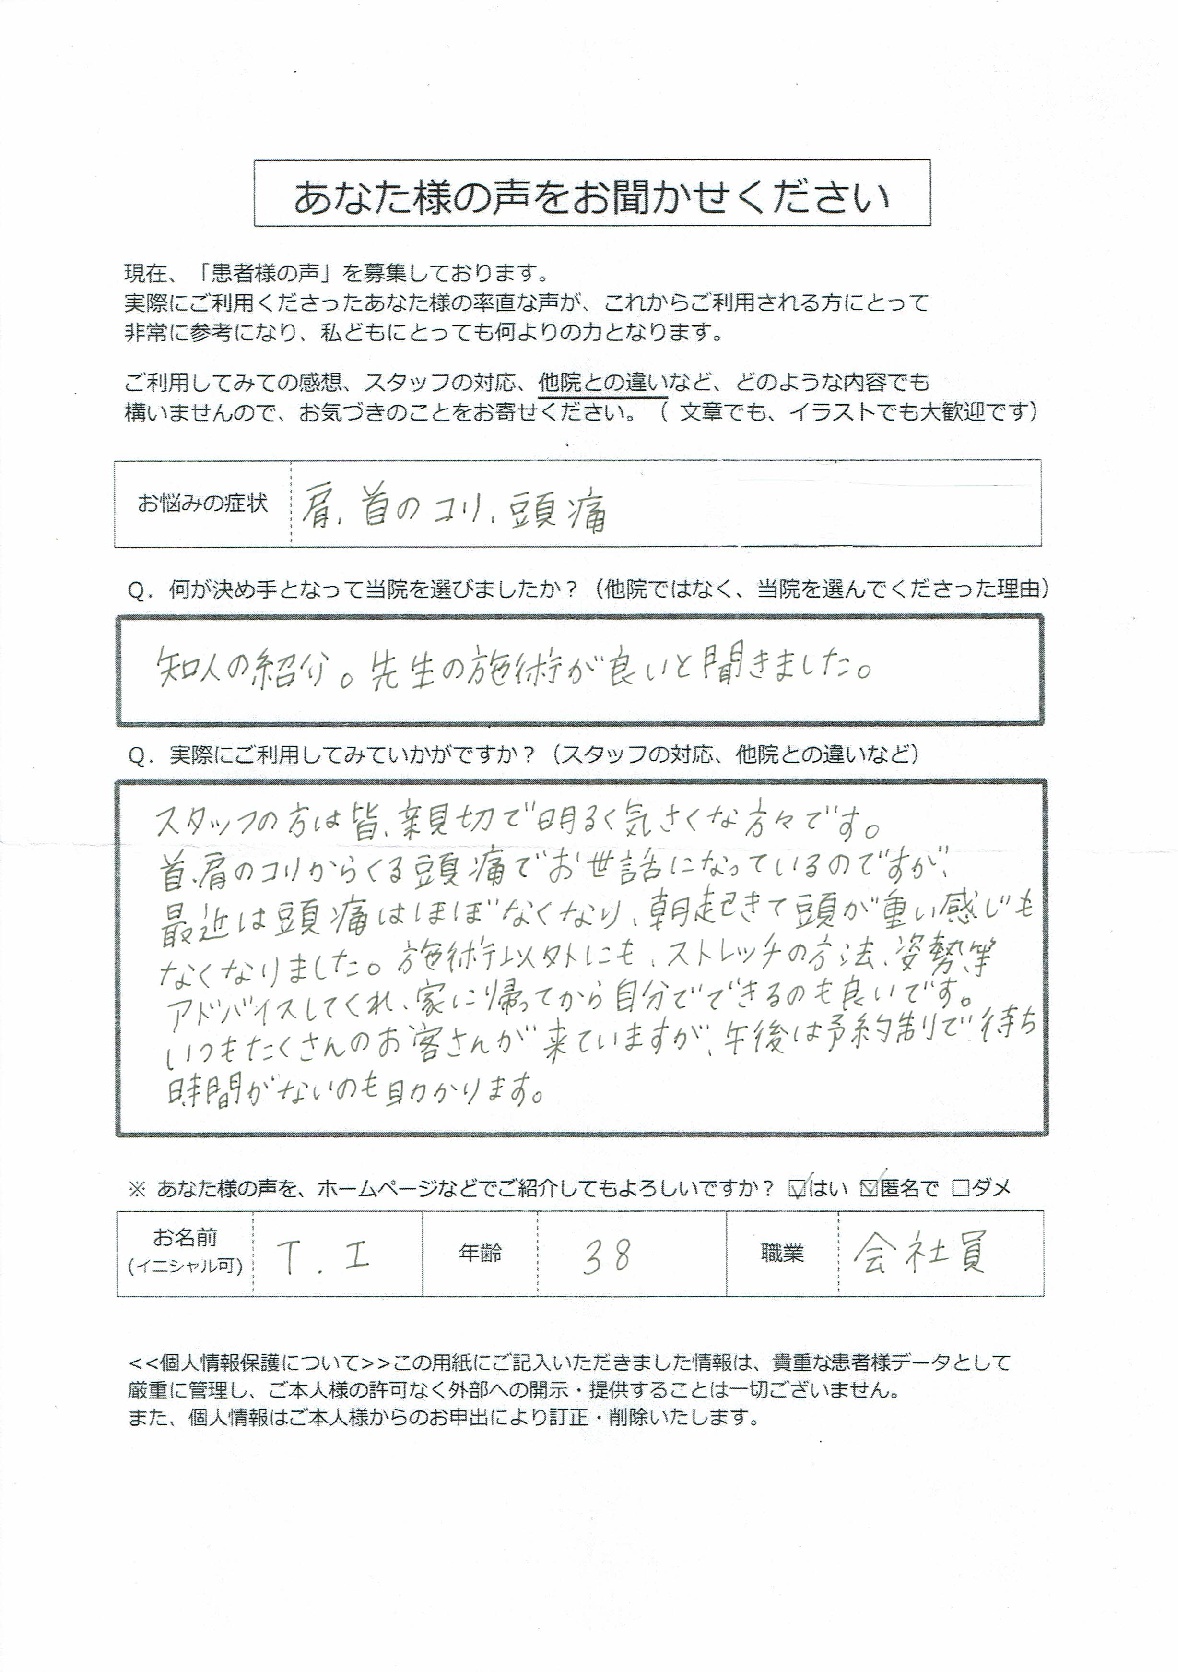 あなた様の声をお聞かせください
現在、「患者様の声」を募集しております。
実際にご利用くださったあなた様の率直な声が、これからご利用される方にとって
非常に参考になり、私どもにとっても何よりの力となります。
ご利用してみての感想、スタッフの対応、他院との違いなど、どのような内容でも
構いませんので、お気づきのことをお寄せください。（ 文章でも、イラストでも大歓迎です）
お悩みの症状 肩、首のコリ、頭痛
Q．何が決め手となって当院を選びましたか？（他院ではなく、当院を選んでくださった理由）
知人の紹介。先生の施術が良いと聞きました。
Q．実際にご利用してみていかがですか？（スタッフの対応、他院との違いなど）
スタッフの方は皆、親切で明るく気さくな方々です。
首、肩のコリからくる頭痛でお世話になっているのですが、
最近は頭痛はほぼなくなり、朝起きて頭が重い感じも
なくなりました。施術以外にも、ストレッチの方法、姿勢、等
アドバイスしてくれ、家に帰ってから自分でできるのも良いです。
いつもたくさんのお客さんが来ていますが、午後は予約制で待ち
時間がないのも助かります。
※ あなた様の声を、ホームページなどでご紹介してもよろしいですか？ ☑はい ☑匿名で □ダメ
お名前 T．I 年齢 38 職業 会社員
(イニシャル可)
<<個人情報保護について>>この用紙にご記入いただきました情報は、貴重な患者様データとして
厳重に管理し、ご本人様の許可なく外部への開示・提供することは一切ございません。
また、個人情報はご本人様からのお申出により訂正・削除いたします。